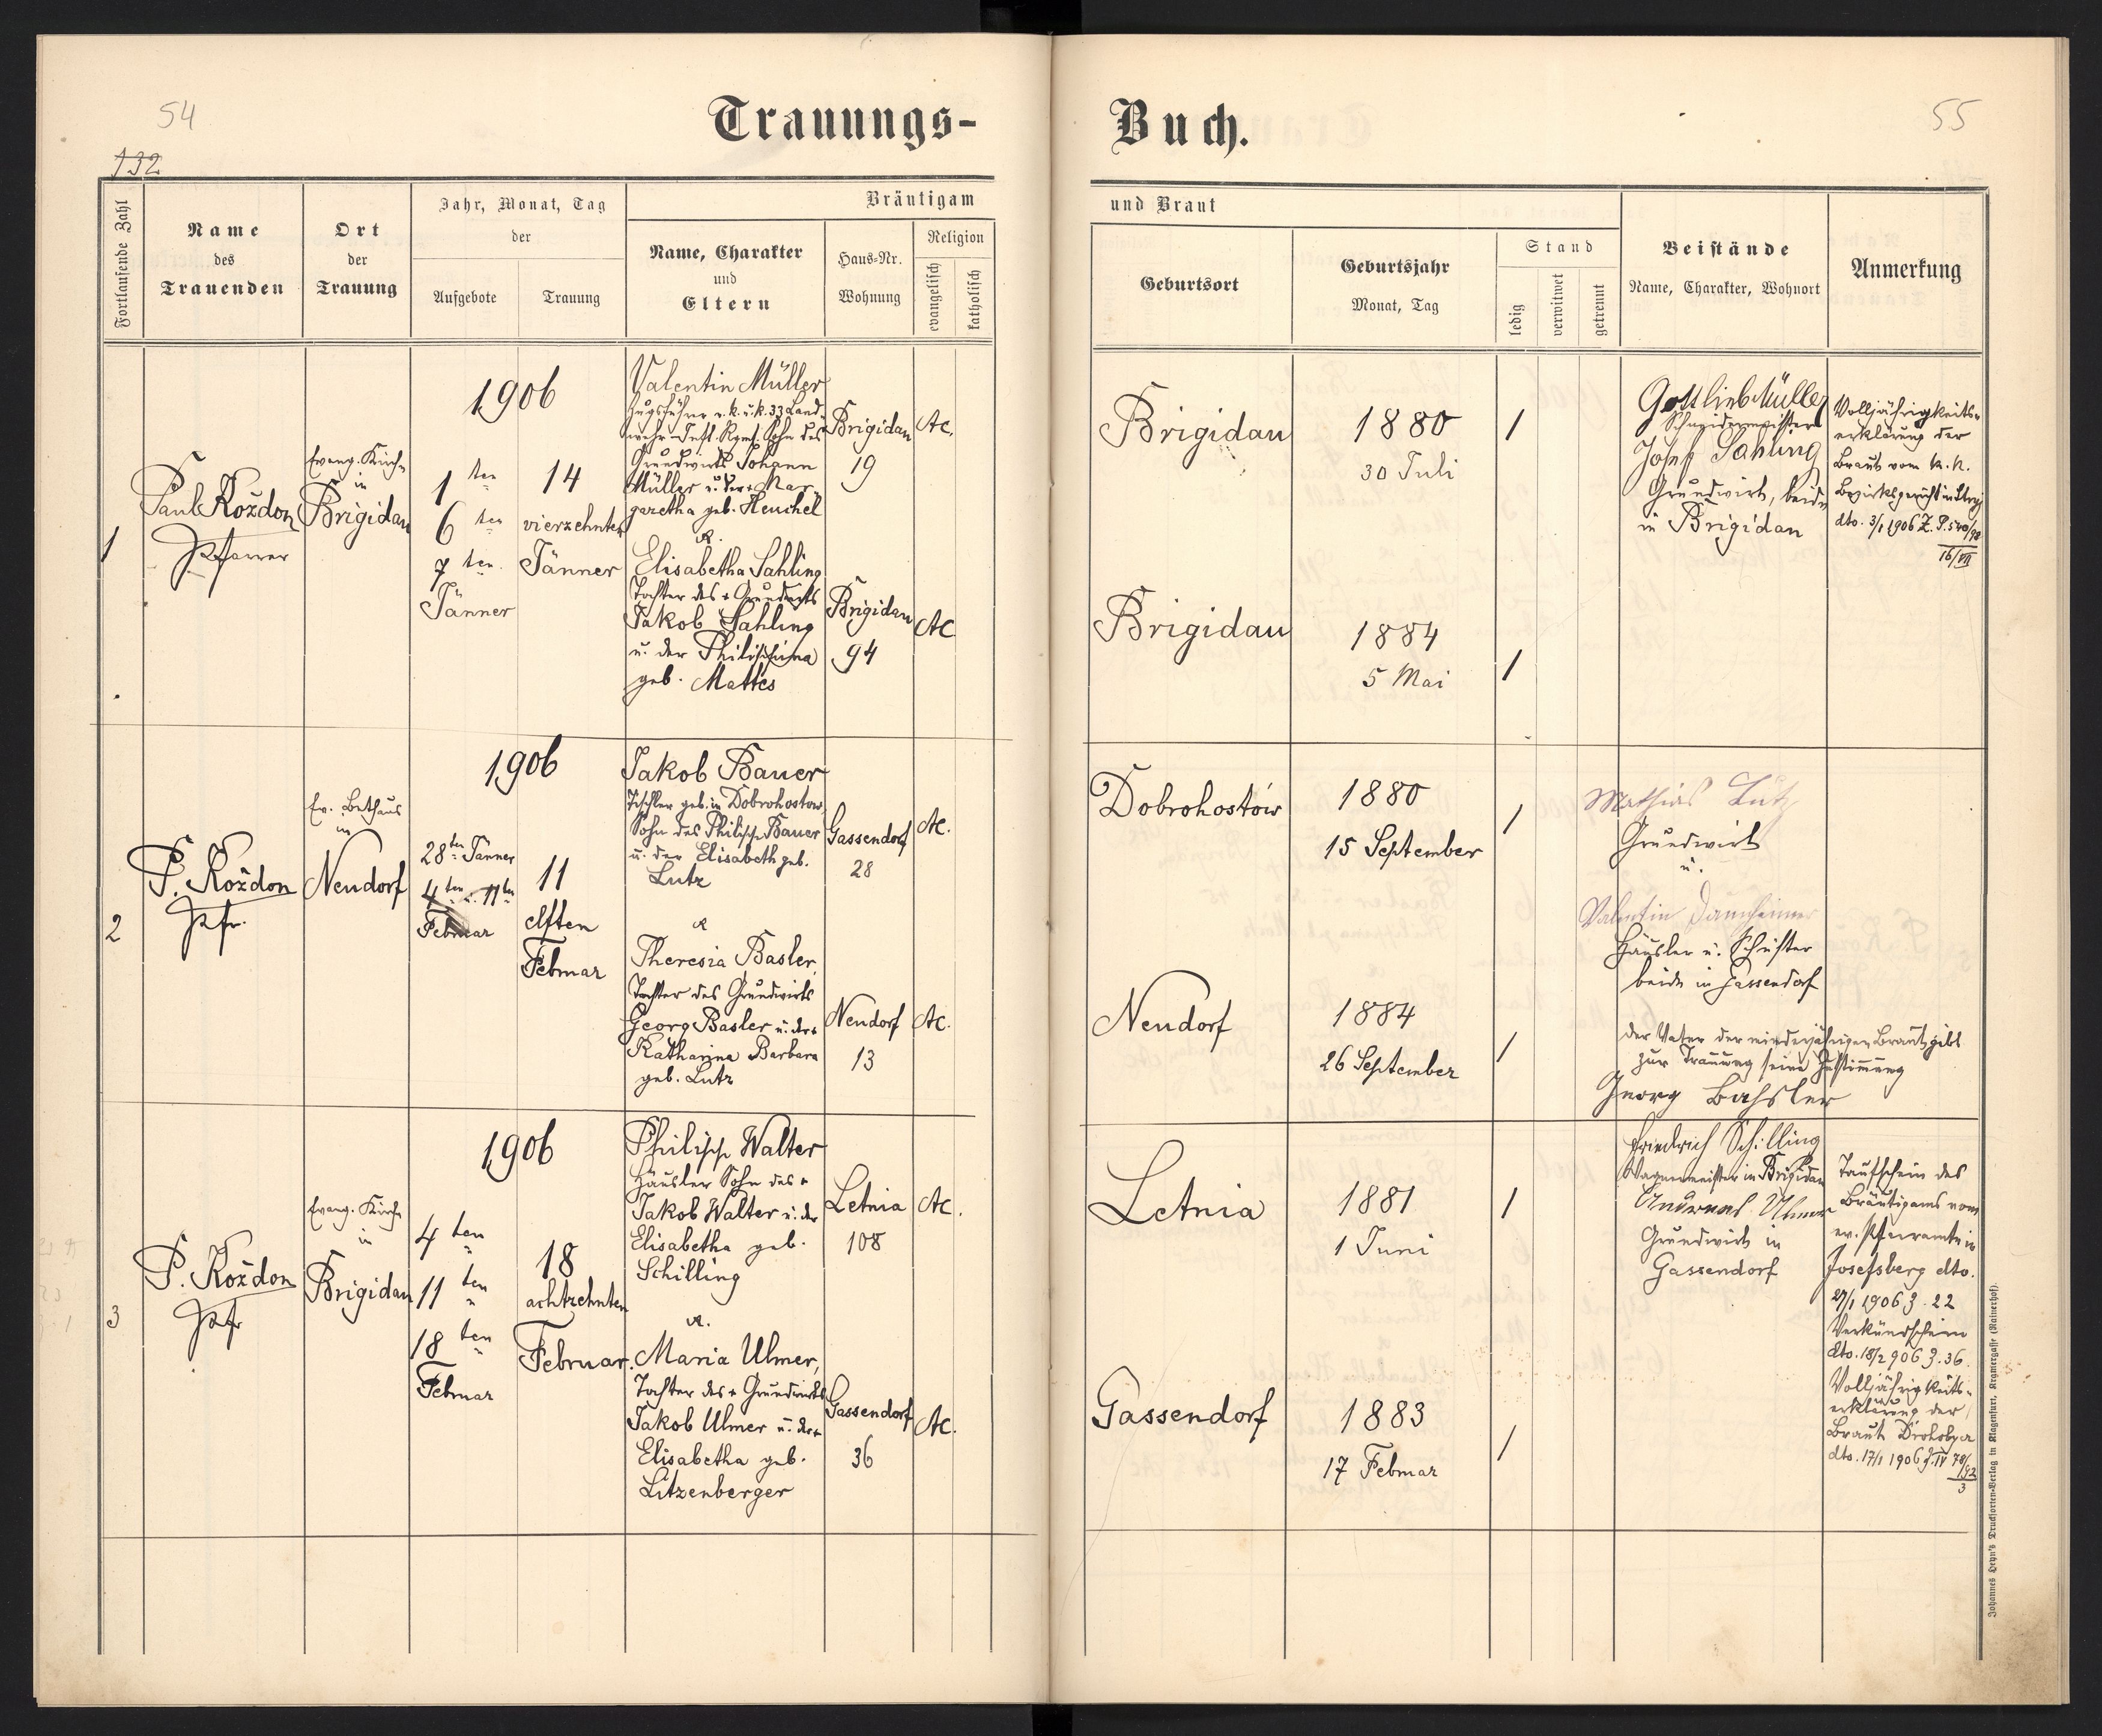 54
132
Trauungs-
Fortlaufende Zahl
Name
des
Trauenden
Ort
der
Trauung
Jahr, Monat, Tag
der
Aufgebote
Trauung
Bräutigam
Name, Charakter
und
Eltern
Haus-Nr.
Wohnung
Religion
evangelisch
katholisch
1
Paul Koždon
Pfarrer
Evang. Kirche
in
Brigidau
1906
1 ten
6 ten
7 ten
Jänner
14
vierzehnten
Jänner
Valentin Müller
Zugsführer v. k. u. k. 33 Land-
wehr-Inft. Rgmt. Sohn des
Grundwirts Johann
Müller u. der + Mar-
garetha geb. Heuchel
u.
Elisabetha Sahling
Tochter des + Grundwirts
Jakob Sahling
u. der Philippina
geb. Mattes
Brigidau
19
AC.
Brigidau
94
AC
2
P. Koždon
Pfr.
Ev. Bethaus
in
Neudorf
1906
28ten Jänner
4ten u. 11ten
Februar
11
elften
Februar
Jakob Bauer
Tischler geb. in Dobrohostow
Sohn des Philipp Bauer
u. der Elisabeth geb.
Lutz
u
Theresia Basler
Tochter des Grundwirts
Georg Basler u. der +
Katharina Barbara
geb. Lutz
Gassendorf
28
AC.
Neudorf
13
AC.
3
P. Koždon
Pfr
Evang. Kirche
in
Brigidau
1906
4 ten
11 ten
18 ten
Februar
18
achtzehnten
Februar.
Philipp Walter
Häusler Sohn des +
Jakob Walter u. der
Elisabetha geb.
Schilling
u.
Maria Ulmer,
Tochter des + Grundwirts
Jakob Ulmer u. der +
Elisabetha geb.
Litzenberger
Letnia
108
AC.
Gassendorf
36
AC.
55
Buch.
und Braut
Geburtsort
Geburtsjahr
Monat, Tag
Stand
ledig
verwitwet
getrennt
Beistände
Name, Charakter, Wohnort
Anmerkung
Brigidau
1880
30 Juli
1
Gottlieb Müller
Schneidermeister
Josef Sahling
Grundwirt, beide
in Brigidau
Volljährigkeits-
erklärung der
Braut vom k. k.
Bezirksgericht in Stryj
dto. 3/1 1906 Z. P. 540/98
16/VII
Brigidau
1884
5 Mai
1
Dobrohostów
1880
15 September
1
Mathias Lutz
Grundwirt
u.
Valentin Dannheimer
Häusler u. Schuster
beide in Gassendorf
Neudorf
1884
26 September
1
der Vater der minderjährigen Braut gibt
zur Trauung seine Zustimmung
Georg Bahsler
Letnia
1881
1 Juni
1
Friedrich Schilling
Wagnermeister in Brigidau
Andreas Ulmer
Grundwirt in
Gassendorf
Taufschein des
Bräutigams vom
ev. Pfarramte in
Josefsberg dto.
27/1 1906 Z. 22
Verkündschein
dto. 18/2 906 Z. 36.
Volljährigkeits-
erklärung der
Braut Drohobycz
dto. 17/1 1906 Z. IV 78/92
3
Gassendorf
1883
17 Februar
1
Johannes Heyn's Drucksorten-Verlag in Klagenfurt, Krzmergasse (Rainerhof).